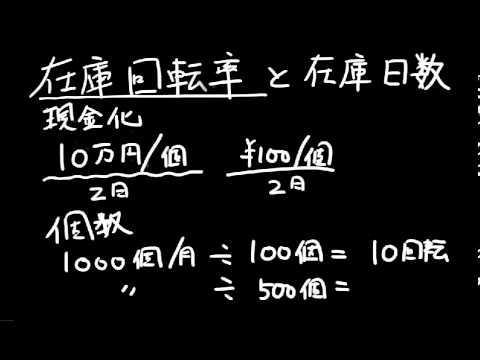 在庫回転率と在庫日数
現金化
10万円/個 ¥100/個
2日 2日
個数
1000個/月 ÷ 100個 = 10回転
〃 ÷ 500個 =